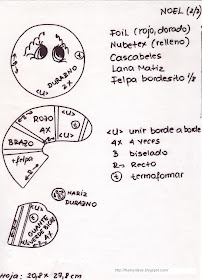 NOEL (2/2)
Foil (rojo, dorado)
Nubetex (relleno)
Cascabeles
Lana Matiz
Felpa bordesito 1/2
DURAZNO
2X
<U>
ROJO
4X
<U>
BRAZO
+felpa
<U> unir borde a borde
4x 4 veces
3 biselado
R- Recto
t termoformar
NARIZ
DURAZNO
<U>
GUANTE
Hoja: 20,8 x 27,8 cm